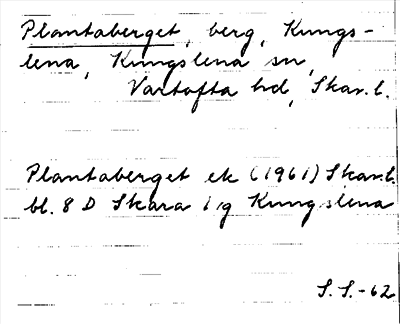 Plantaberget, berg, Kungs-
lena, Kungslena sn,
Vartofta hd, Skar. l.
Plantaberget ek (1961) Skar. l.
bl. 8 D Skara 1 g Kungslena
S. S. -62